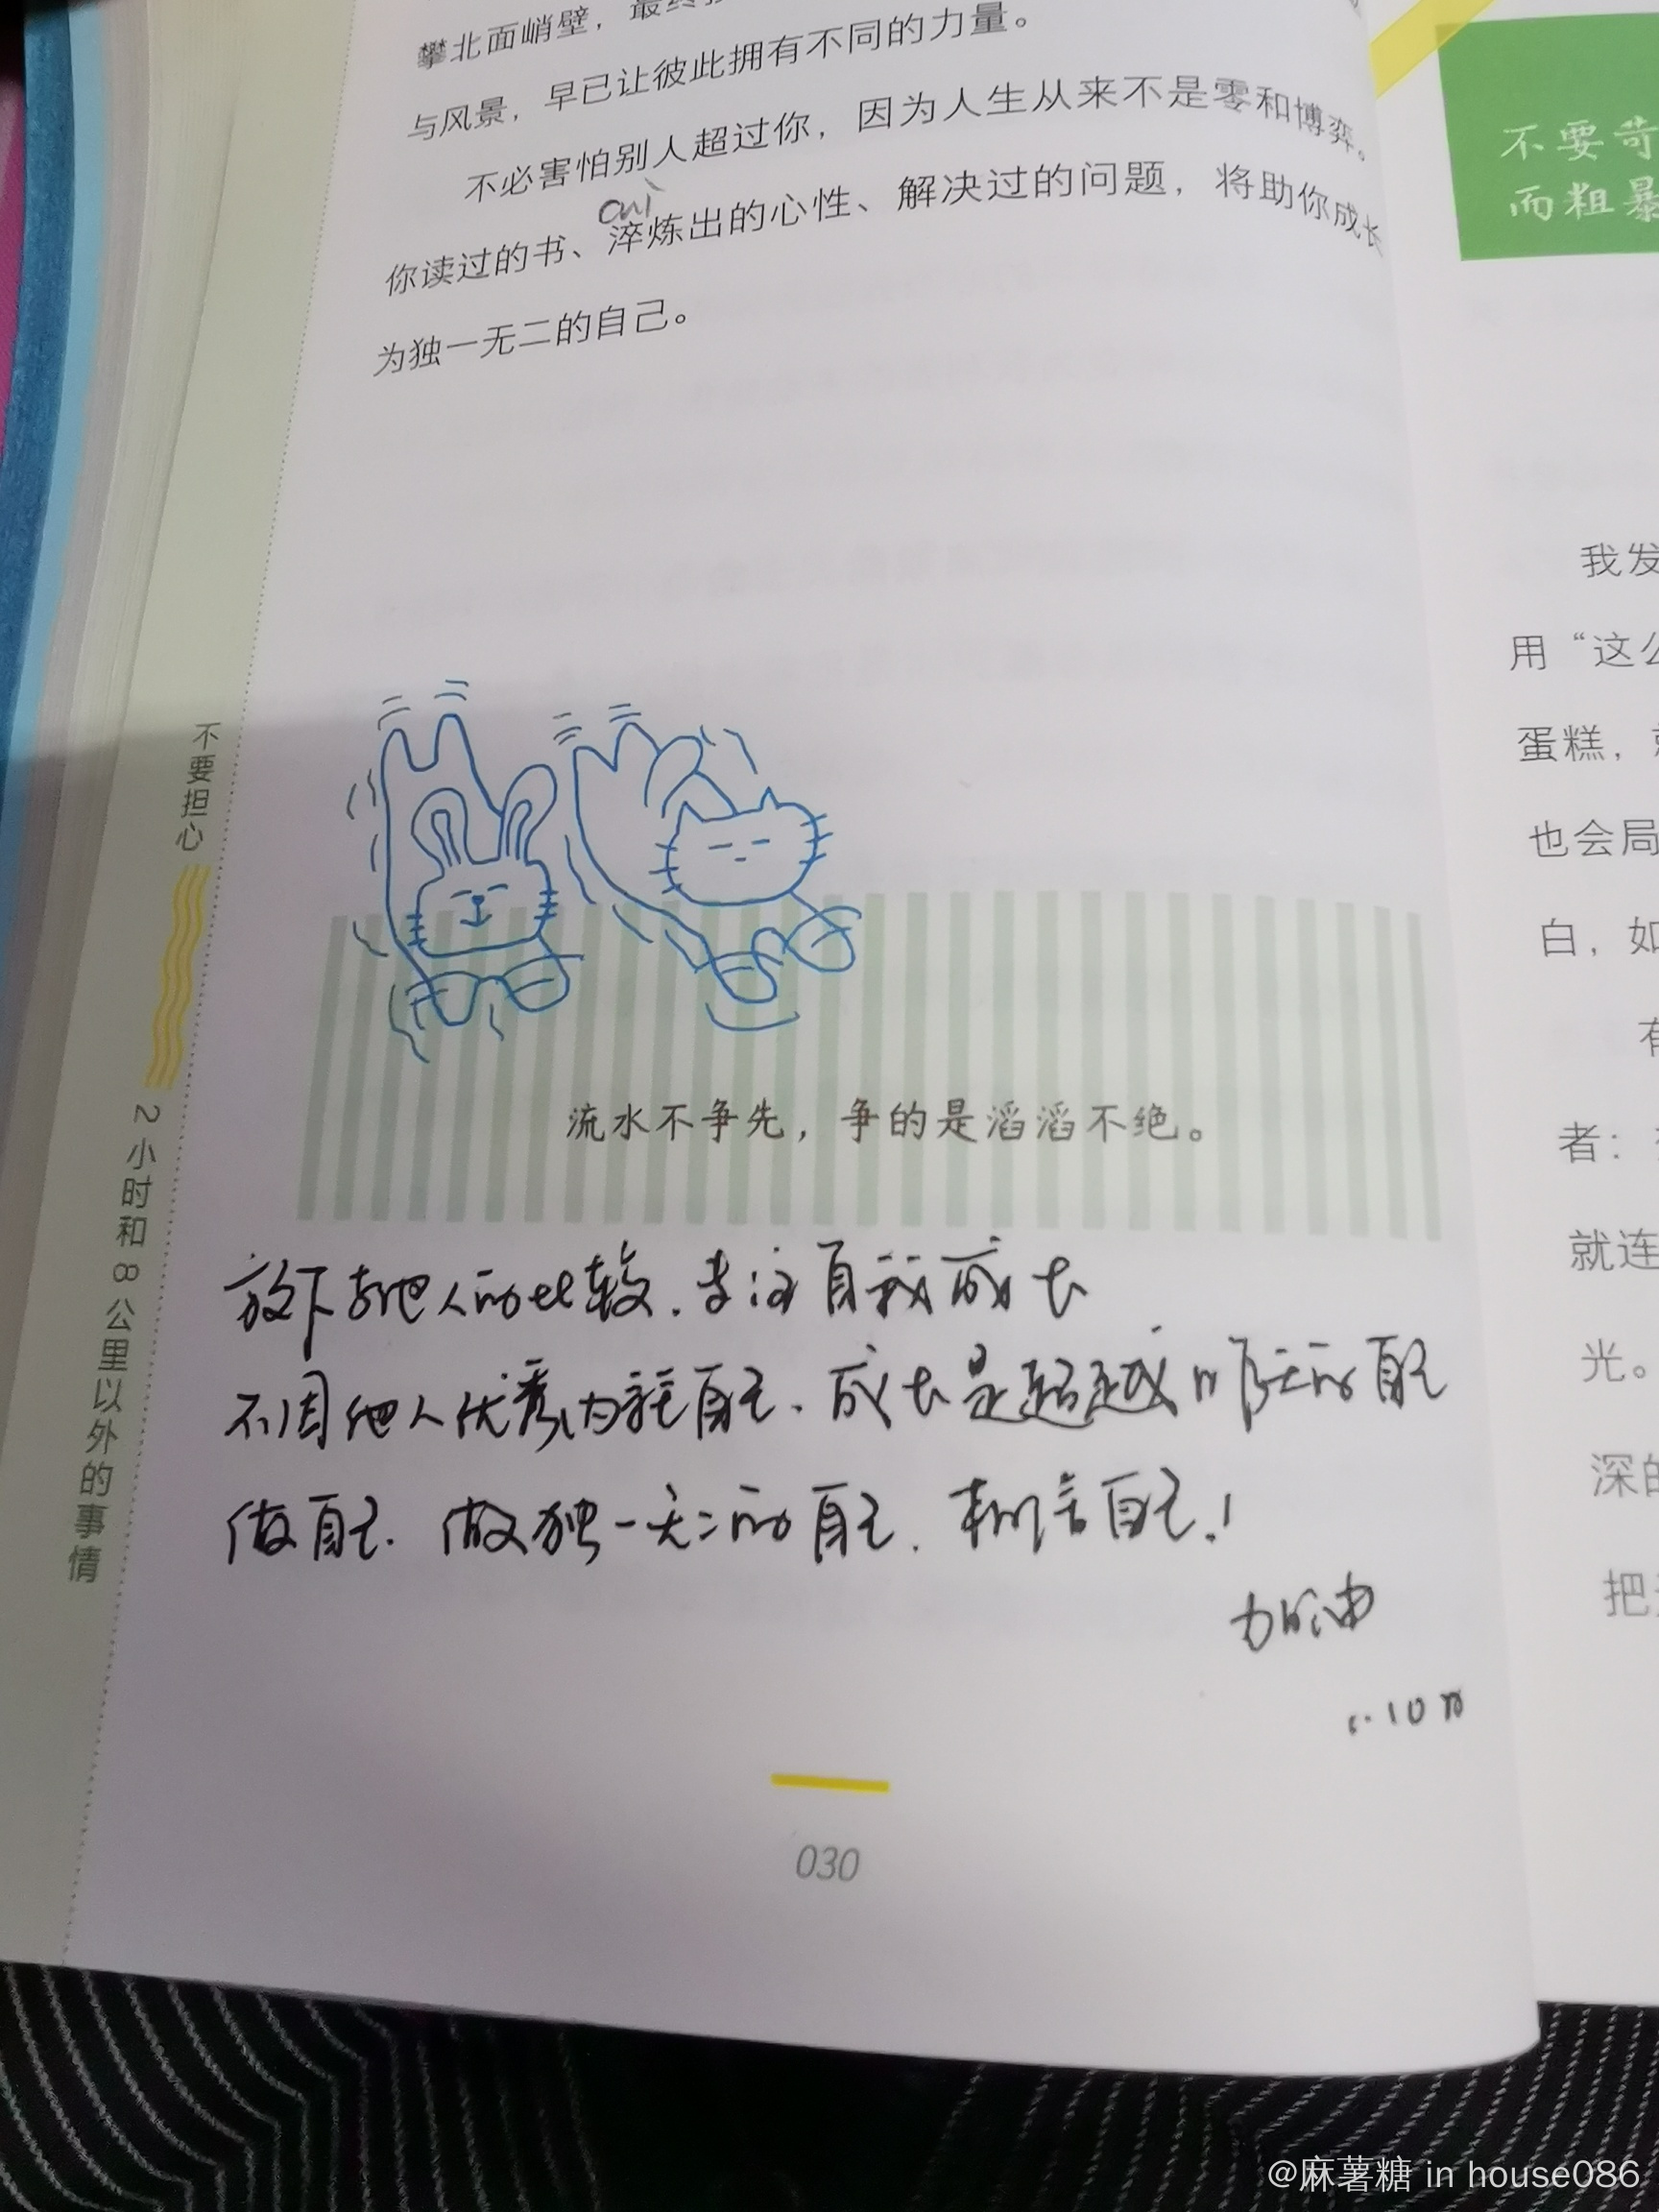 攀北面峭壁，最终
与风景，早已让彼此拥有不同的力量。
不必害怕别人超过你，因为人生从来不是零和博弈。
cuì
你读过的书、淬炼出的心性、解决过的问题，将助你成长
为独一无二的自己。
不要担心
2小时和8公里以外的事情
流水不争先，争的是滔滔不绝。
放下与他人的比较.专注自我成长
不因他人优秀,内耗自己.成长是超越昨天的自己
做自己.做独一无二的自己.相信自己!
加油
030
不要苛
而粗暴
我发
用“这么
蛋糕，
也会局
白，如
有
者：
就连
光。
深的
把
@麻薯糖 in house086